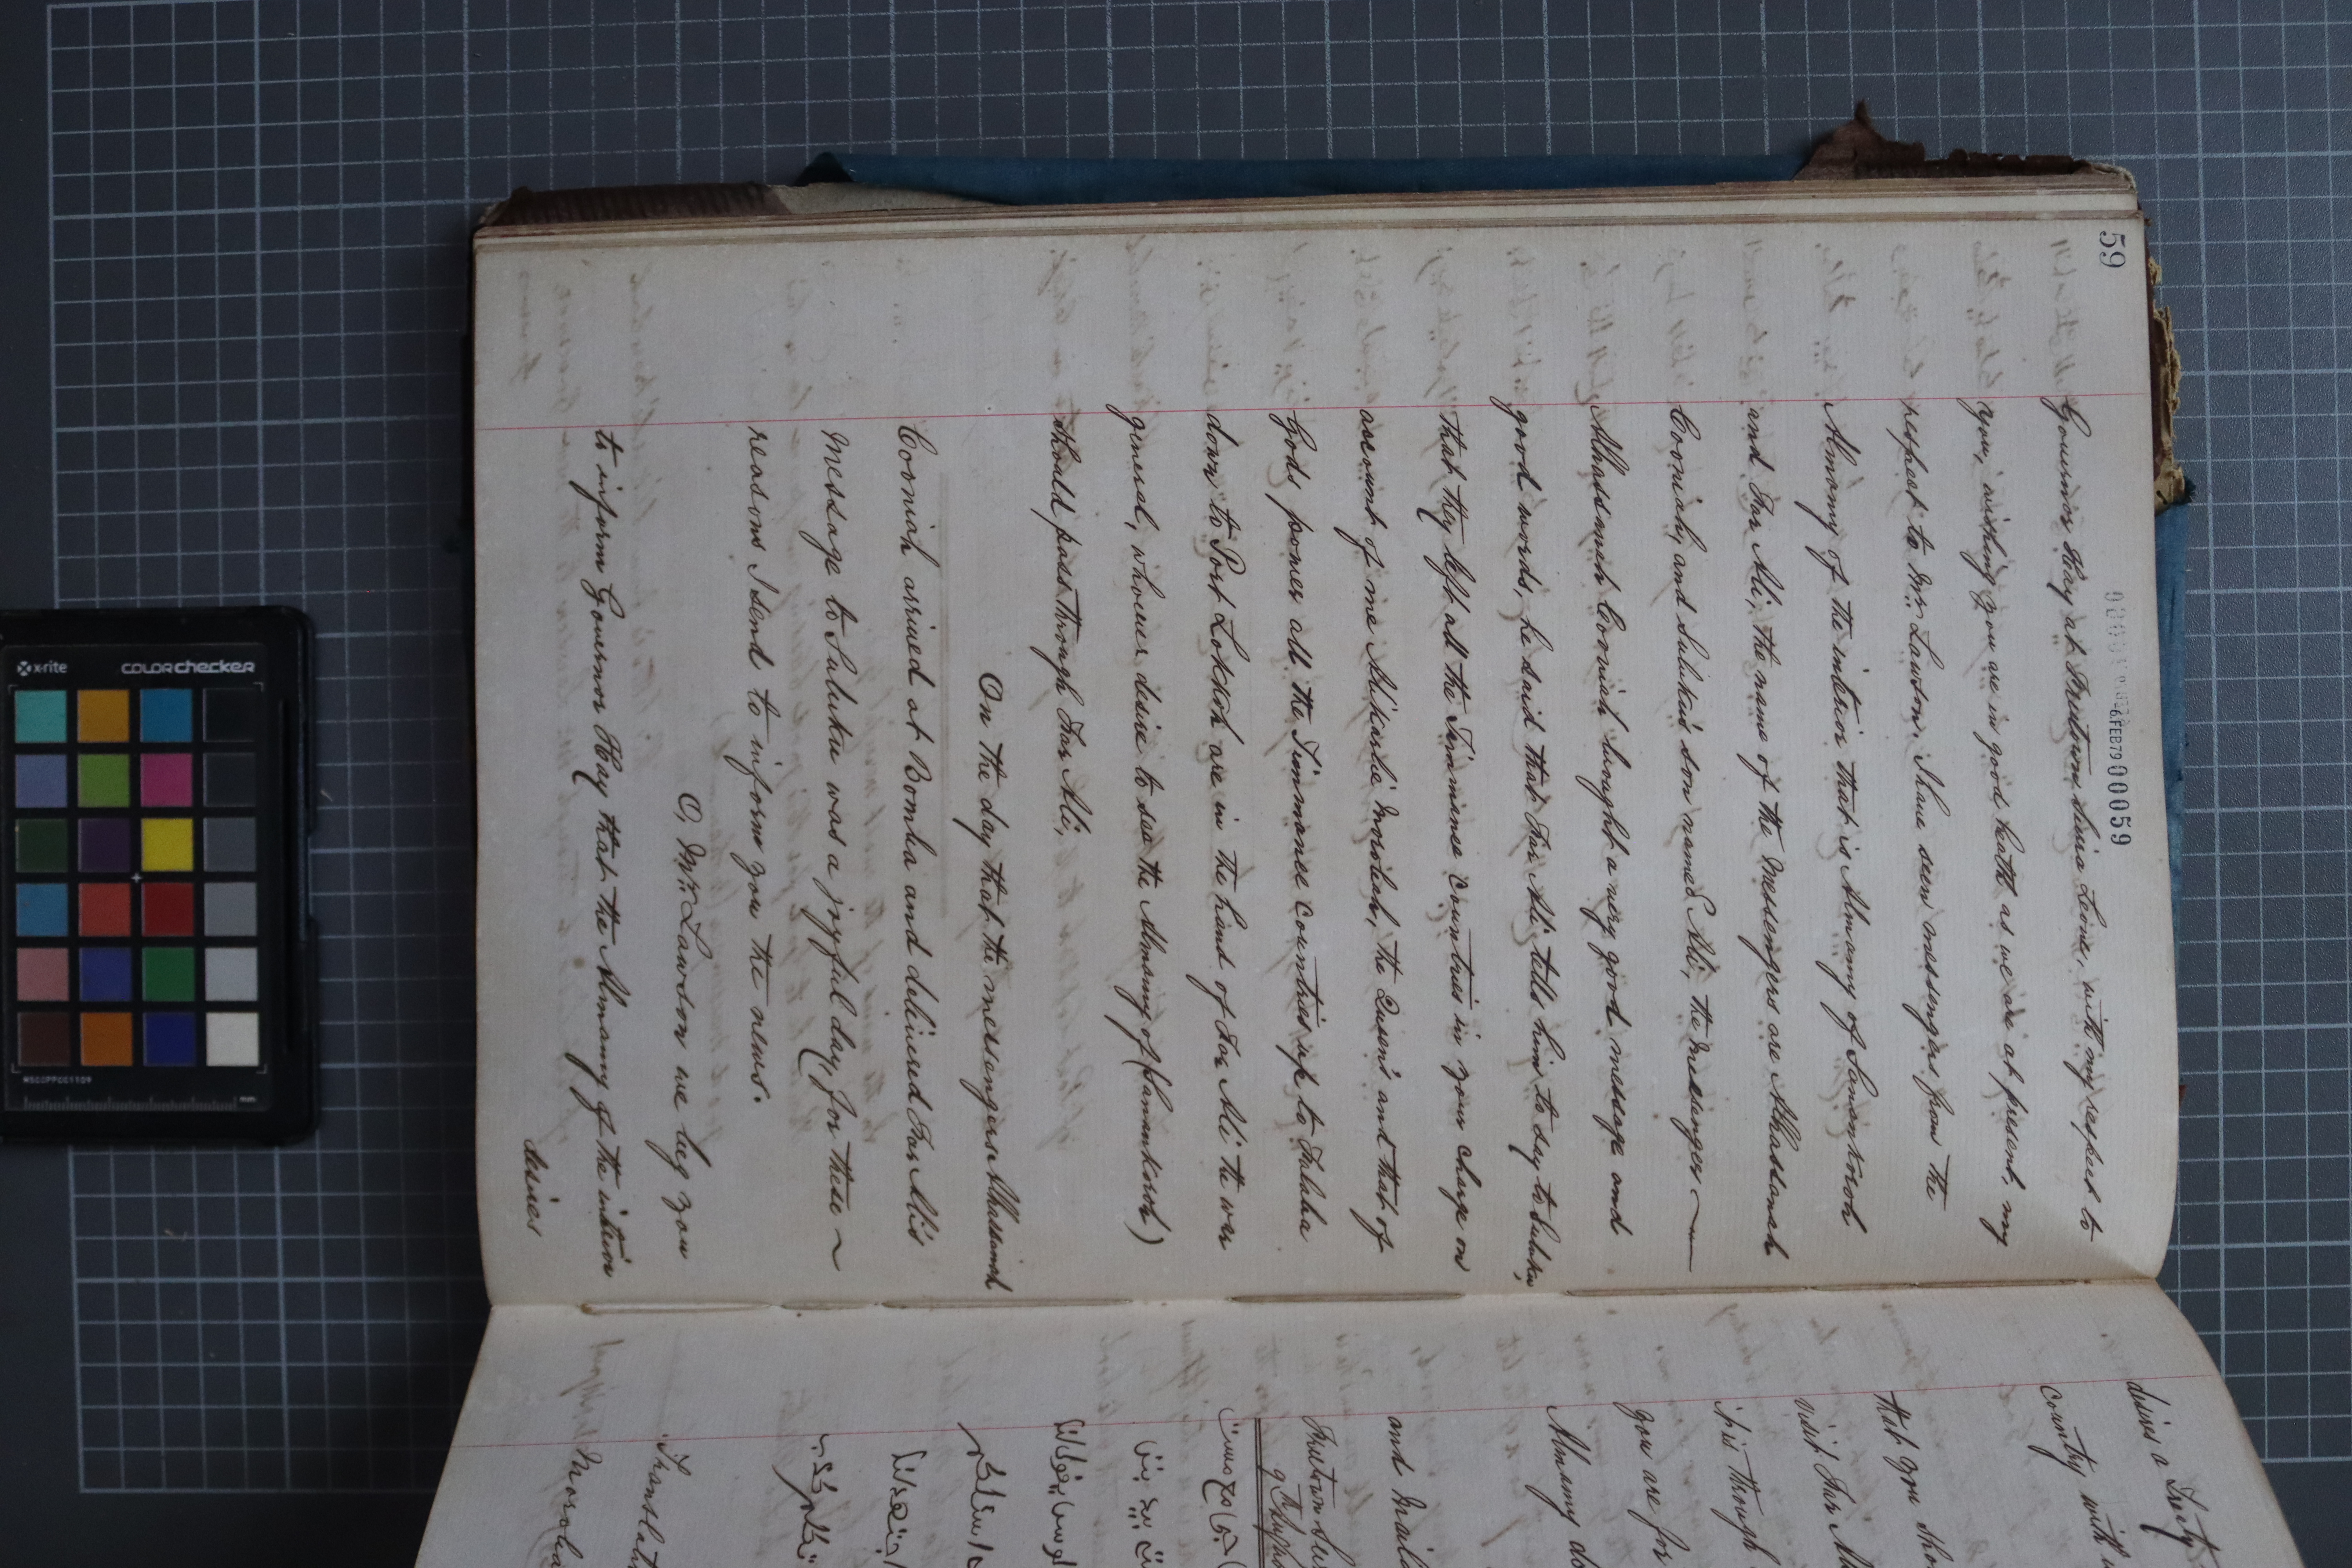 59
00059
Governor Hay at Freetown Sierra Leone, with my respect to
you, wishing you are in good health as we are at present, my
respect to Mr Lawson. I have seen messengers from the
Almamy of the interior that is Almamy of
and Far Ali, the name of the Messengers are Alhassanah
Cooniah, and Suluku's son named Ali, the Messenger
Alhassanah Cooniah brought a very good message and
good words, he said that Far Ali tells him to say to Suluku,
that they left all the Timmanee Countries in your Charge on
account of me Sehearlie Moribah, the Queen's and that of
Gods power all the Timmanee Countries up to Falaba
down to Port Lokkoh are in the hand of Far Ali the war
general, whoever desire to see the Almamy of
should pass through Far Ali,
On the day that the messengers Alhassanah
Cooniah arrived at Bomba and delivered Far Ali's
Message to Suluku was a joyful day, for these
reasons I send to inform you the news.
O, Mr Lawson we beg you
to inform Governor Hay that the Almamy of the interior
desires
desires a Trety
Country with
that you
visit Far
it is through
you are for
Almamy
and
x-rite
colorchecker
mm